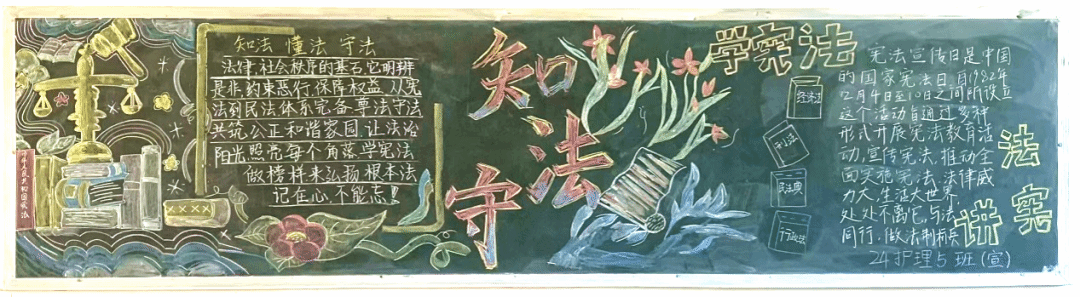 知法 懂法 守法
法律,社会秩序的基石,它明辨
是非,约束恶行,保障权益,从宪
法到民法体系完备,要法守法
共筑公正和谐家园,让法治
阳光照亮每个角落,学宪法
做榜样来弘扬根本法
记在心,不能忘!
知法
守
学宪法
讲宪法
宪法宣传日是中国
的国家宪法日,自1982年
12月4日至10日之间所设立
这个活动旨通过多种
形式开展宪法教育活
动,宣传宪法,推动全
面实施宪法,法律威
力大,生活大世界,
处处不离它,与法
同行,做法制标兵
24护理5班(宣)
刑法
民法典
行政法